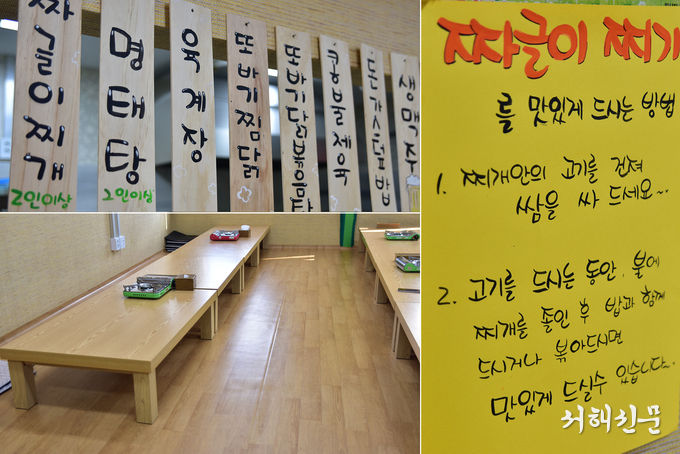 짜글이찌개
2인이상
명태탕
2인이상
육계장
또바기찜닭
또바기닭볶음탕
콩불제육
돈가스덮밥
생맥주
짜글이 찌개
를 맛있게 드시는 방법
1. 찌개안의 고기를 건져
쌈을 싸 드세요~..
2. 고기를 드시는 동안. 불에
찌개를 졸인 후 밥과 함께
드시거나 볶아드시면
맛있게 드실수 있습니다~.
서해신문